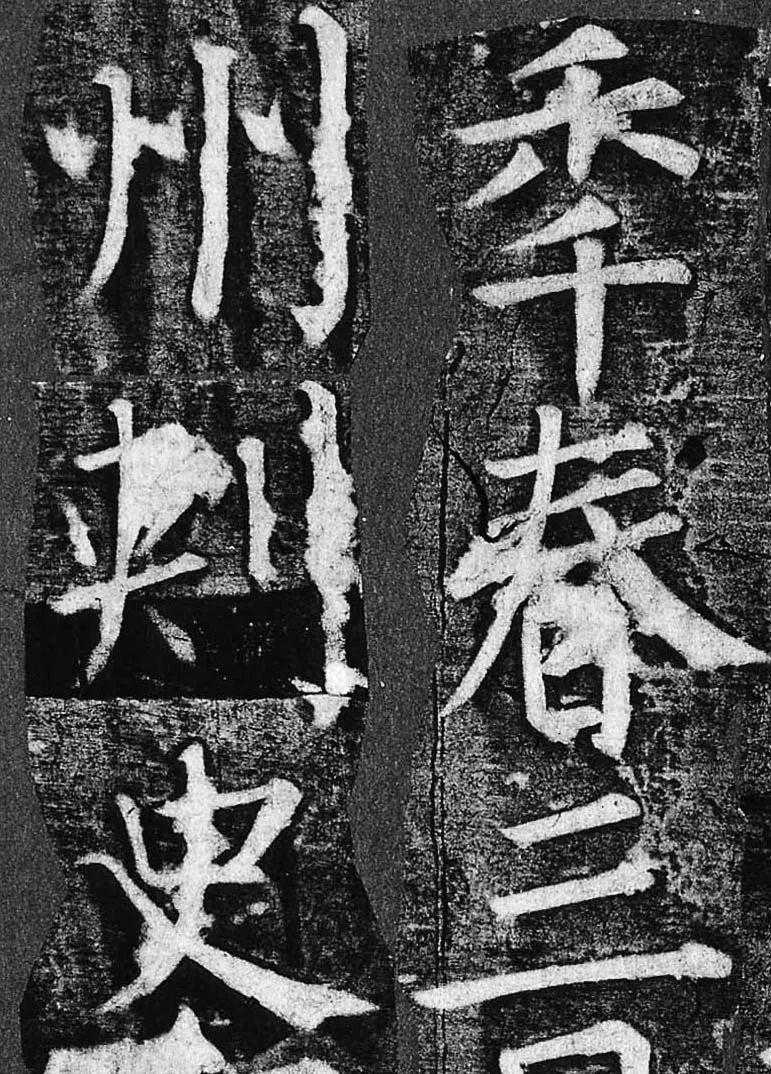 秊春三
州刺史